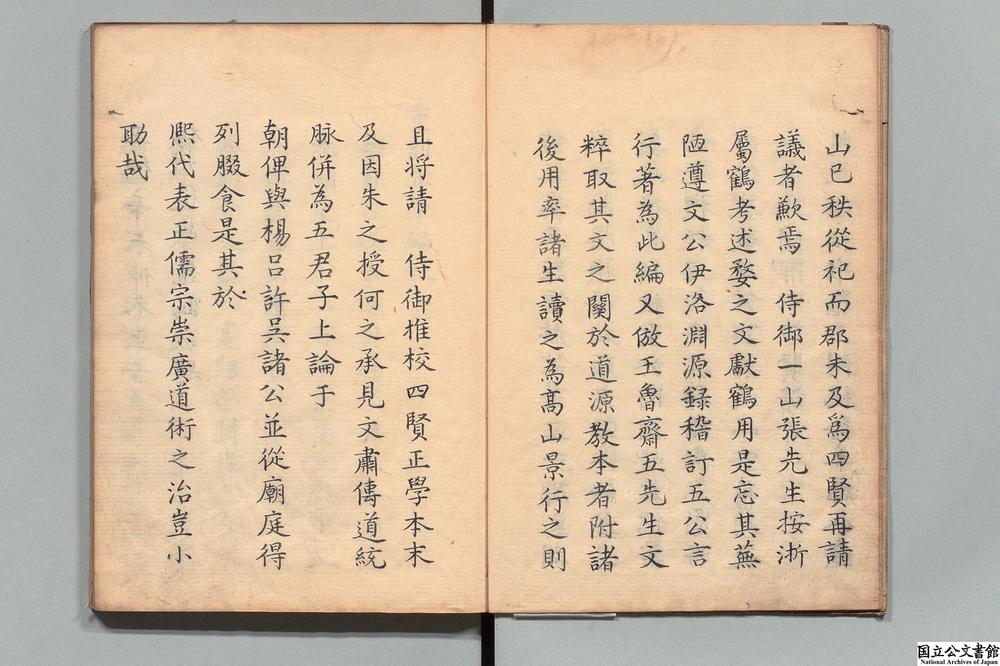 山已秩從祀而郡朱及為四賢再請
議者歉焉　侍御一山張先生按浙
屬鶴考述婺之文獻鶴用是忘其蕪
陋遵文公伊洛淵源録稽訂五公言
行著為此編又倣王魯齋五先生文
粹取其文之關於道源教本者附諸
後用率諸生讀之為髙山景行之則
且将請　侍御推校四賢正學本末
及因朱之授何之承見文肅傳道統
脉併為五君子上論于
朝俾與楊呂許吳諸公並從廟庭得
列腏食是其於
熈代表正儒宗崇廣道術之治豈小
助哉
国立公文書館
National Archives of Japan